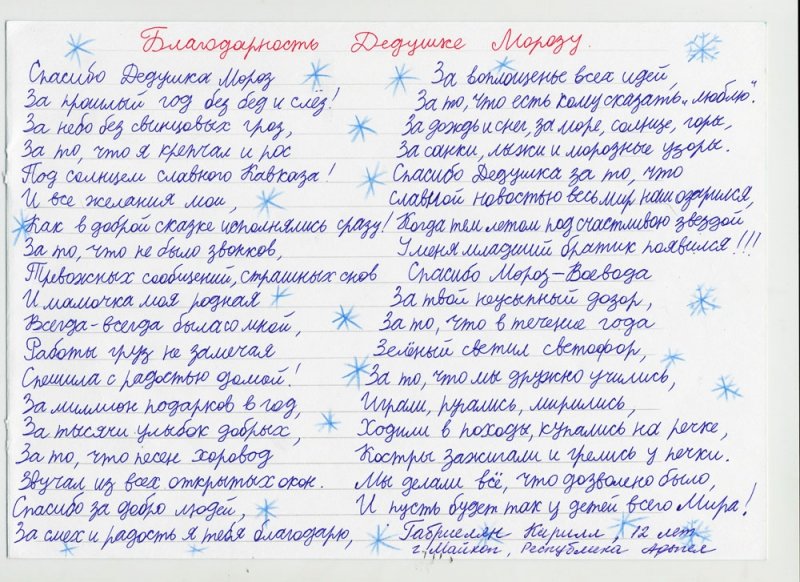 Благодарность Дедушке Морозу.
Спасибо Дедушка Мороз
За прошлый год без бед и слёз!
За небо без свинцовых гроз,
За то, что я крепчал и рос
Под солнцем славного Кавказа!
И все желания мои,
Как в доброй сказке исполнялись сразу!
За то, что не было звонков,
Тревожных сообщений, страшных снов
И мамочка моя родная
Всегда-всегда была со мной,
Работы груз не замечая
Спешила с радостью домой!
За миллион подарков в год,
За тысячи улыбок добрых,
За то, что песен хоровод
Звучал из всех открытых окон.
Спасибо за добро людей,
За смех и радость я тебя благодарю,
За воплощенье всех идей,
За то, что есть кому сказать „люблю".
За дождь и снег, за море, солнце, горы,
За санки, лыжи и морозные узоры.
Спасибо Дедушка за то, что
славной новостью весь мир наш озарился,
Когда тем летом под счастливою звездой
У меня младший братик появился!!!
Спасибо Мороз-Воевода
За твой неусыпный дозор,
За то, что в течение года
Зелёный светил светофор,
За то, что мы дружно учились,
Играли, ругались, мирились,
Ходили в походы, купались на речке,
Костры зажигали и грелись у печки.
Мы делали всё, что дозволено было,
И пусть будет так у детей всего Мира!
Габриелян Кирилл, 12 лет
г. Майкоп, Республика Адыгея